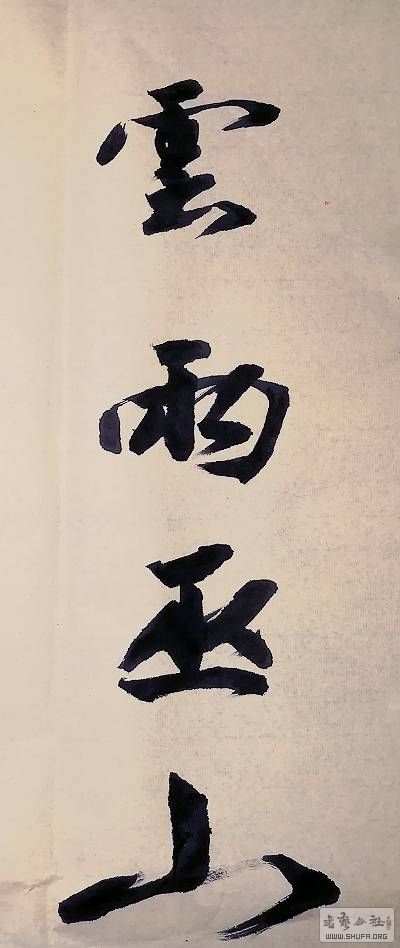 雲雨巫山
書藝公社
WWW.SHUFA.ORG